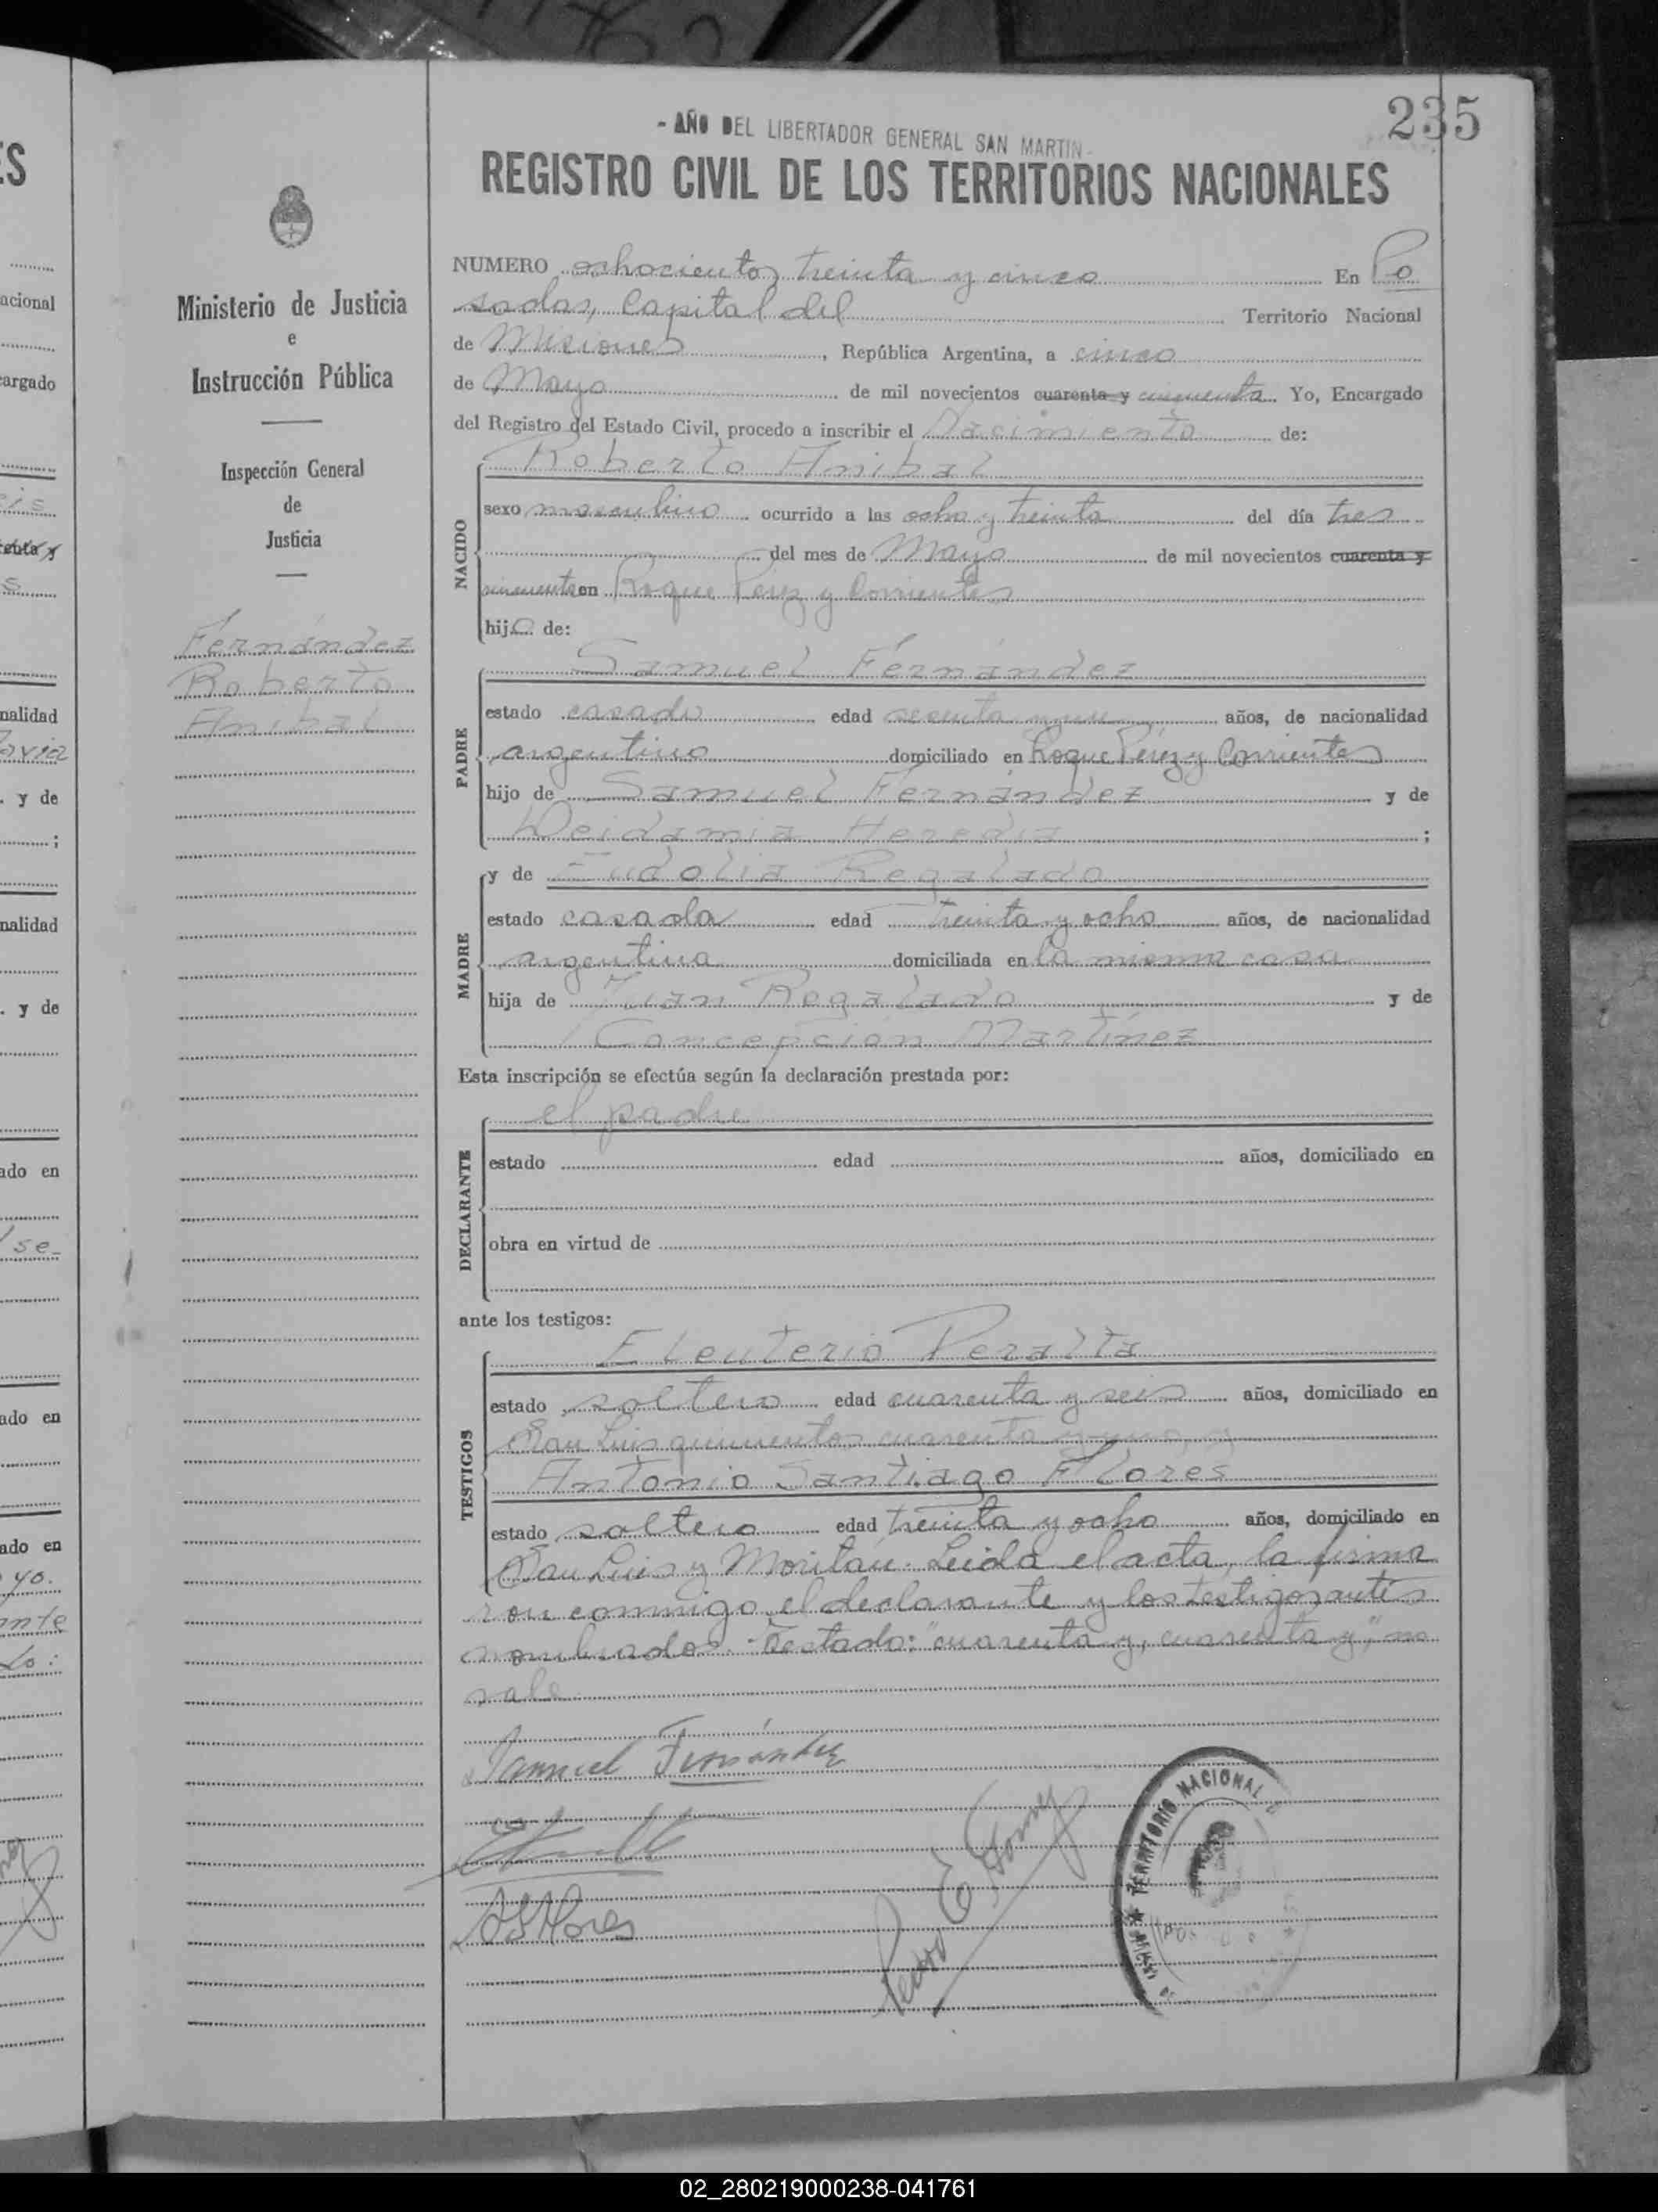 235
- AÑO DEL LIBERTADOR GENERAL SAN MARTIN -
REGISTRO CIVIL DE LOS TERRITORIOS NACIONALES
Ministerio de Justicia
e
Instrucción Pública
Inspección General
de
Justicia
Fernández
Roberto
Anibal
NUMERO ochocientos treinta y cinco En Po
sadas, Capital del Territorio Nacional
de Misiones, República Argentina, a cinco
de Mayo de mil novecientos cuarenta y cincuenta Yo, Encargado
del Registro del Estado Civil, procedo a inscribir el Nacimiento de:
NACIDO
Roberto Anibal
sexo masculino ocurrido a las ocho y treinta del día tres
del mes de Mayo de mil novecientos cuarenta y
cincuenta en Roque Pérez y Corrientes
hijo de:
PADRE
Samuel Fernández
estado casado edad años, de nacionalidad
argentino domiciliado en Roque Pérez y Corrientes
hijo de Samuel Fernández y de
Deidamia Heredia ;
MADRE
y de Eudolia Regalado
estado casada edad treinta y ocho años, de nacionalidad
argentina domiciliada en la misma casa
hija de Juan Regalado y de
Concepción Martínez
Esta inscripción se efectúa según la declaración prestada por:
DECLARANTE
el padre
estado edad años, domiciliado en
obra en virtud de
ante los testigos:
TESTIGOS
Eleuterio Peralta
estado soltero edad cuarenta y seis años, domiciliado en
San Luis quinientos cuarenta y uno, y
Antonio Santiago Flores
estado soltero edad treinta y ocho años, domiciliado en
San Luis y Moritán. Leida el acta, la firma
ron conmigo el declarante y los testigos antes
nombrados. Testado: "cuarenta y, cuarenta y," no
vale
Samuel Fernández
ASFlores
Pedro E. Gomez
TERRITORIO NACIONAL
02_280219000238-041761